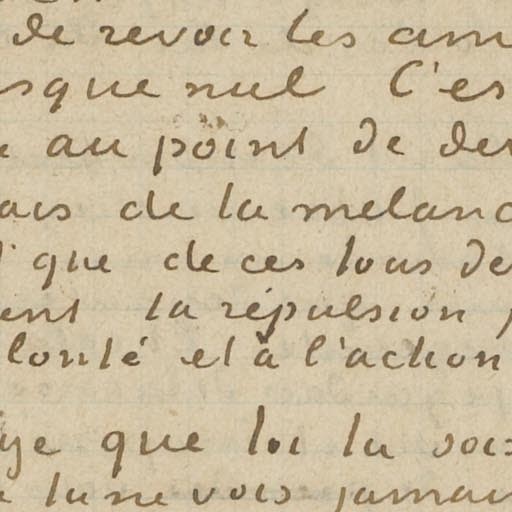 de revoir tes am
sque nul C'es
au point de de
ais de la melanc
que de ces tous de
ent ta répulsion
lonté et à l'action
ye que toi tu vois
tu ne vois jamai